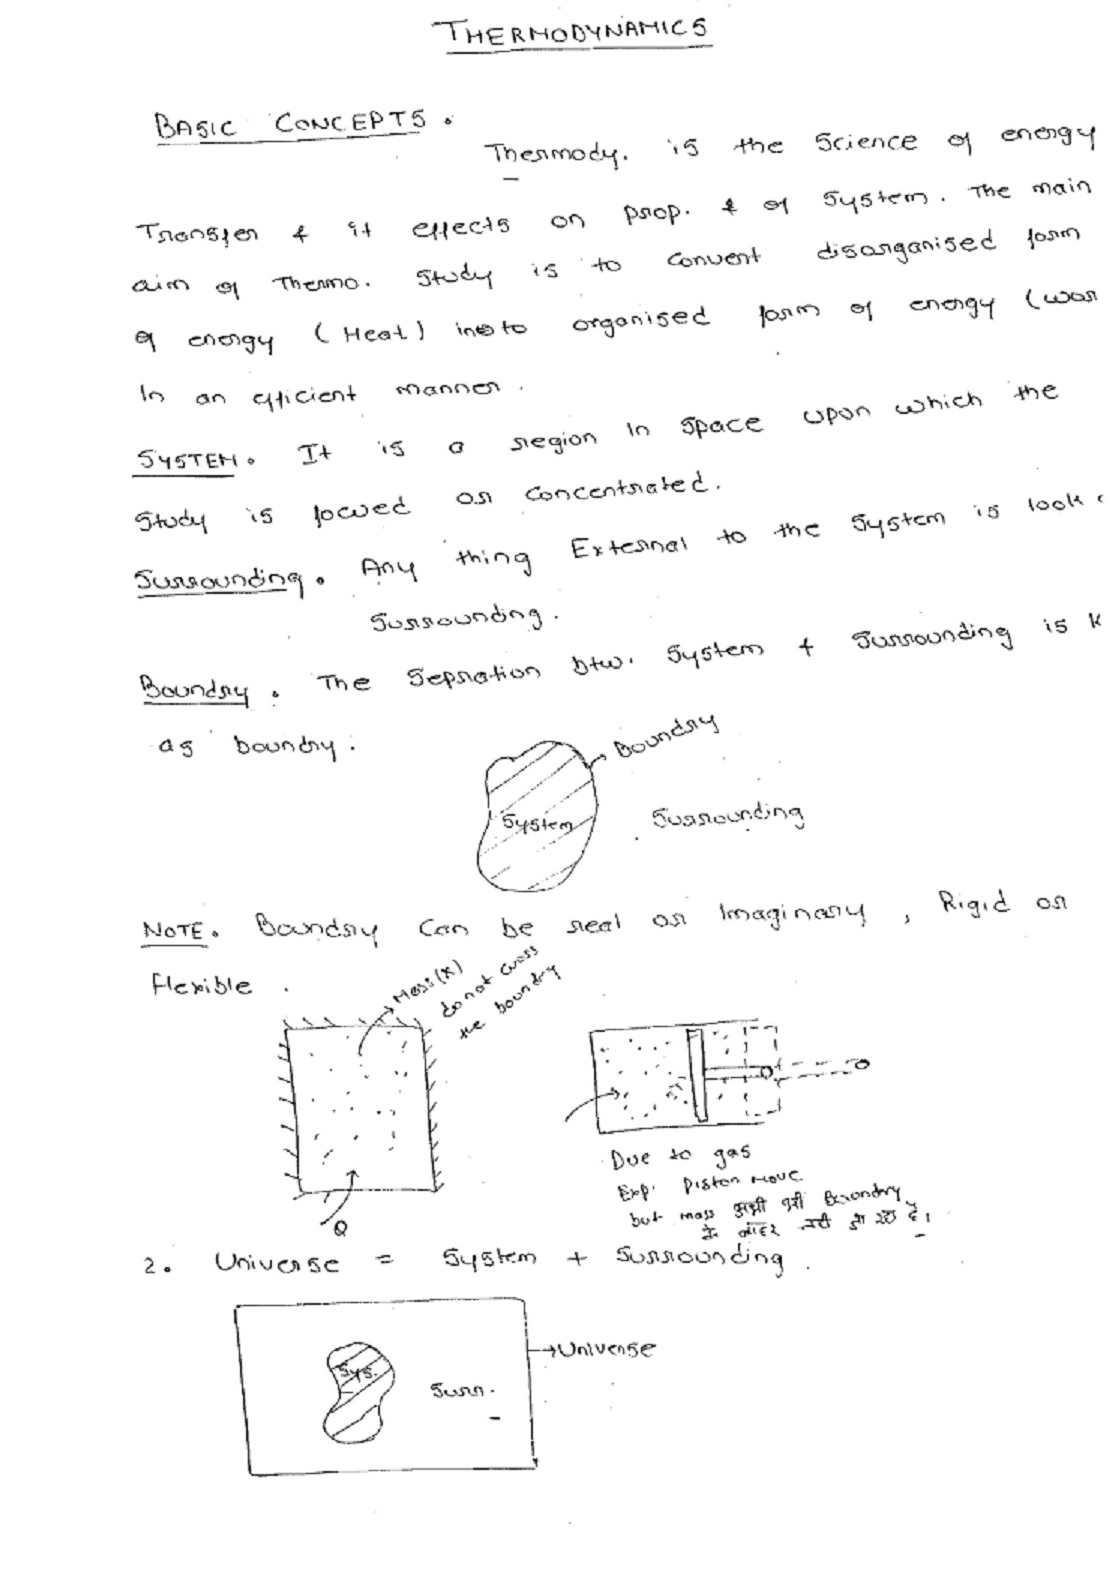 THERMODYNAMICS
BASIC CONCEPTS.
Thermody. is the Science of energy
Transfer & it effects on prop. & of System. The main
aim of Thermo. Study is to Convert disorganised form
of energy (Heat) into organised form of energy (wor
In an efficient manner.
SYSTEM. It is a region In Space upon which the
Study is focued or Concentrated.
Surrounding. Any thing External to the System is look
Surrounding.
Boundry. The Sepration btw. System & Surrounding is k
as boundry.
Boundry
System
Surrounding
NOTE. Boundry Can be real or Imaginary, Rigid or
flexible.
Mass(x)
do not cross
the boundry
Q
Due to gas
Exp. Piston move
but mass अभी भी Boundry
के बाहर नही जा रहा है।
2. Universe = System + Surrounding.
Sys.
Surr.
Universe